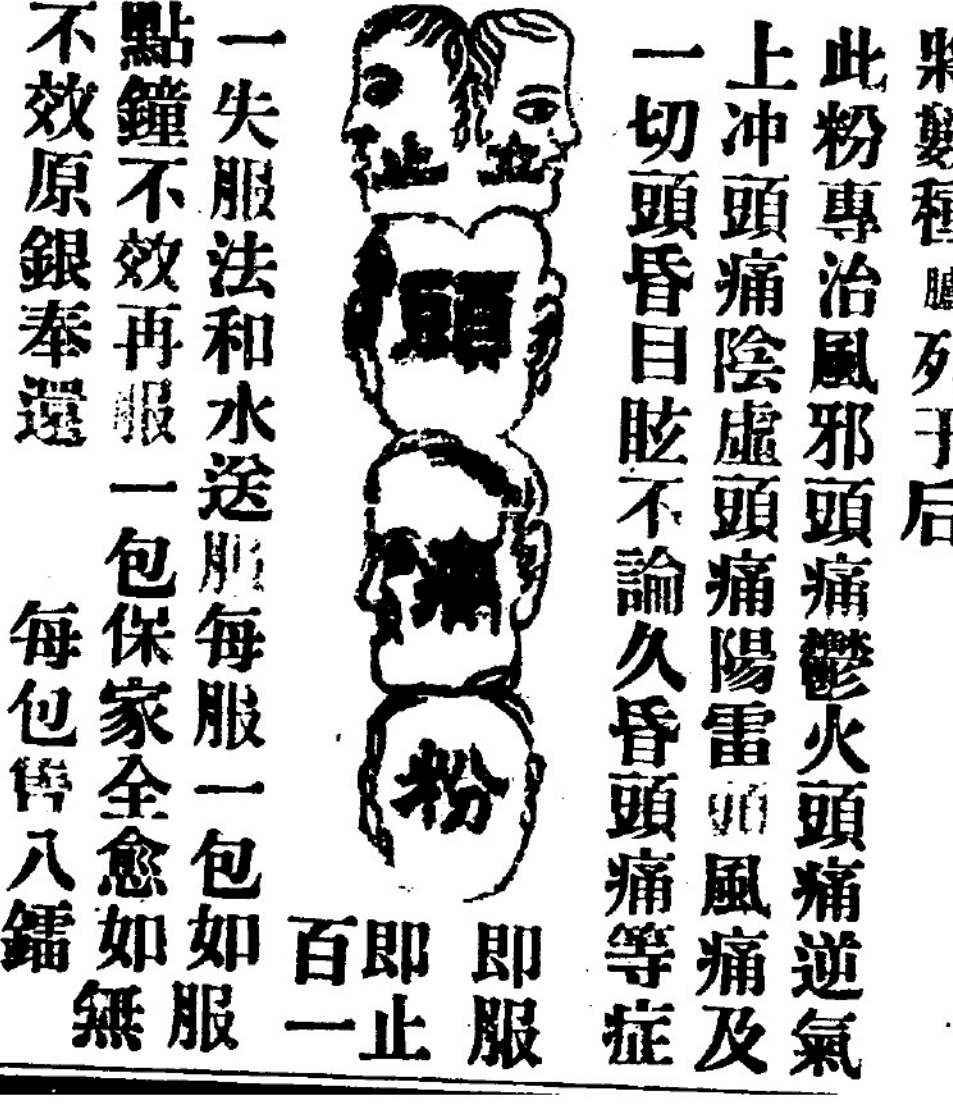 將數種臚列于后
此粉專治風邪頭痛鬱火頭痛逆氣
上冲頭痛陰虛頭痛陽雷頭風痛及
一切頭昏目眩不論久昏頭痛等症
立止頭痛粉
即服
即止
百一
一失服法和水送服每服一包如服
點鐘不效再服一包保家全愈如無
不效原銀奉還 每包售八鐳